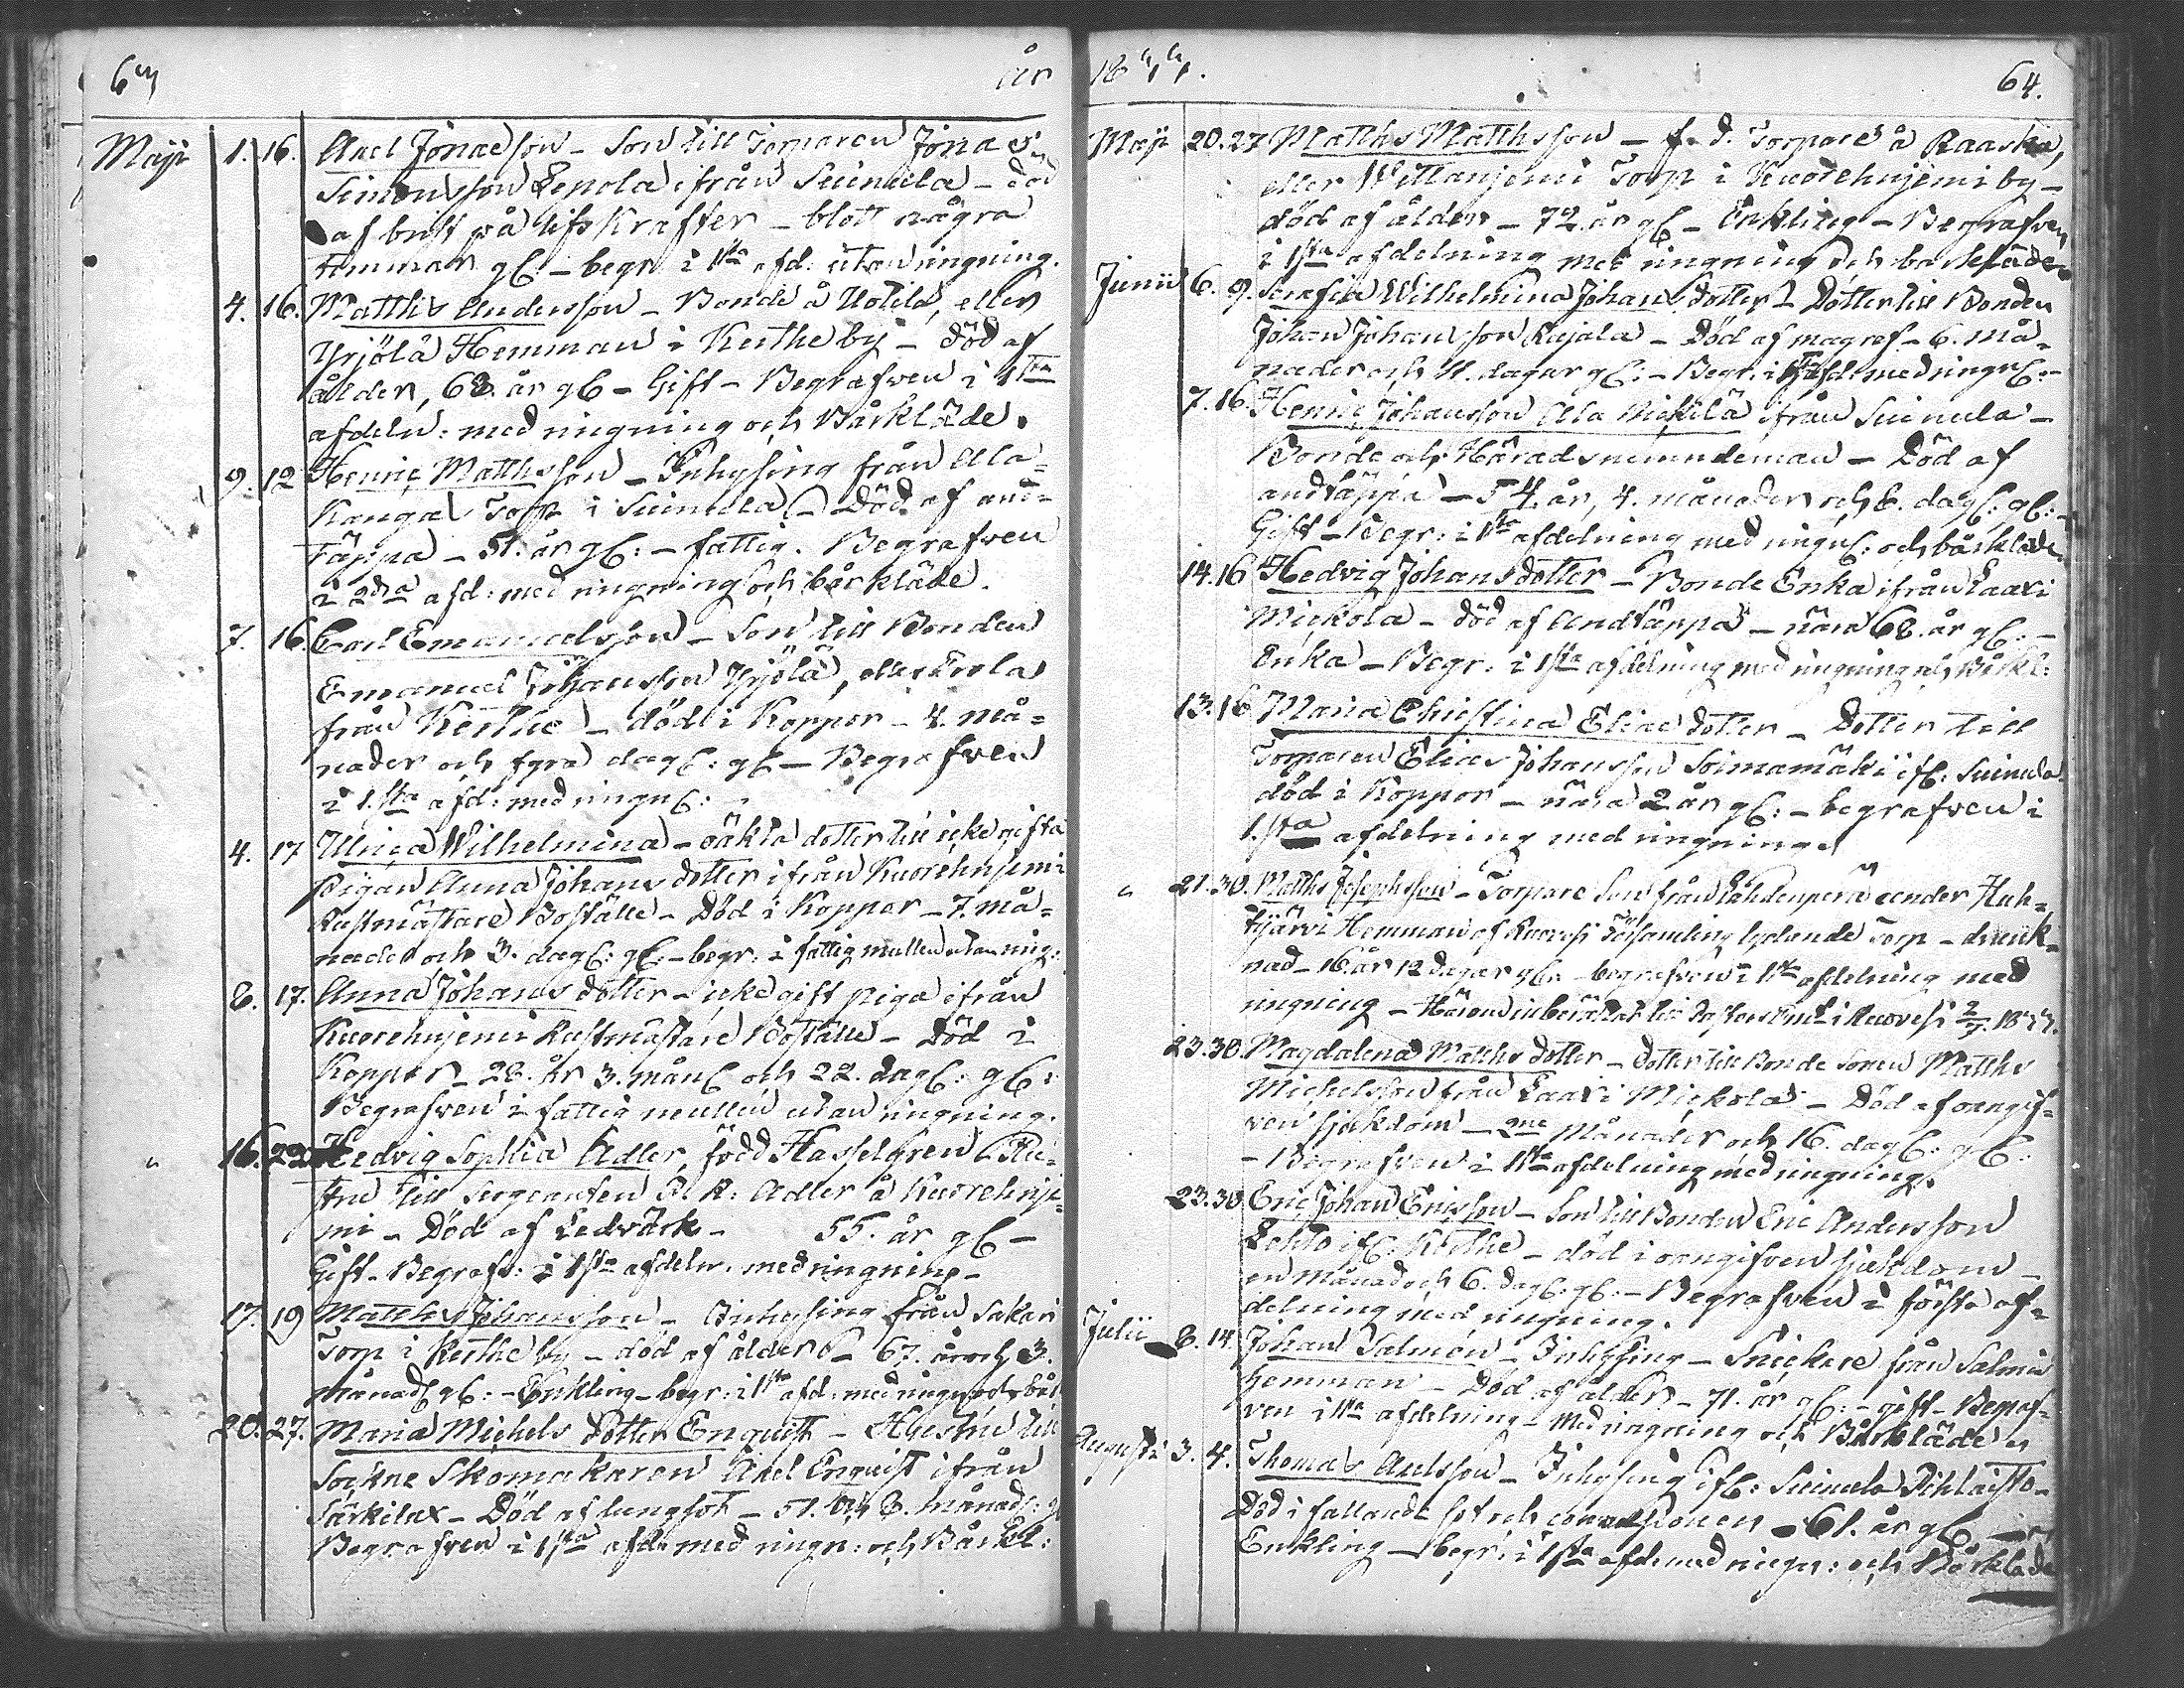 63 år
Maji 1. 16. Axel Jonaesson - Son till Torparen Jonas
Simonsson Lepola ifrån Suinula - död
af brist på lifskrafter - blott några
timmar gl: - begr: i 1sta afd: utan ringning.
4. 16. Matths Andersson - Bonde å Uotila, eller
Yrjölä Hemman i Keuthe by - död af
ålder, 68. år gl - Gift - Begrafven i 1sta
afdeln: med ringning och Bårkläde.
9. 12 Henric Matthsson - Inhysing från Ala-
Kangas Torp i Suinula - Död af and-
täppa - 51. år gl: - fattig. Begrafven
i 2dra afd: med ringning och bårkläde.
7. 16. Carl Emanuelsson - Son till Bonden
Emanuel Johansson Yrjölä, eller Erola
från Keuthe - död i Koppor - 4. må-
nader och fyra dagl: gl - Begrafven
i 1.sta afd: med ringnl:
4. 17 Ulrica Wilhelmina - oäkta dotter till icke gifta
Pigan Anna Johans dotter ifrån Kuorehnjemi
Rustmästare Boställe - Död i Koppor - 7. må-
nader och 3. dagl: gl: - begr: i fattig mullen utan ring:
8. 17. Anna Johans dotter - icke gift piga ifrån
Kuorehnjemi Rustmästare Boställe - Död i
Koppor - 28. år 3. månl och 22. dagl: gl:
Begrafven i fattig mullen utan ringning.
16. 23 Hedvig Sophia Adler, född Hasselgren - Hu-
stru till Sergeanten R. K: Adler å Kuorehnje-
mi - Död af Ledvärk - 55. år gl -
Gift - Begrafv: i 1sta afdeln. med ringning -
17. 19 Matths Johansson - Inhysing från Sakari
Torp i Keuthe by - död af ålder - 67. år och 3.
månadl gl: - Enkling - begr: i 1sta afd: med ringn: och bår
20. 27. Maria Michels dotter Enquist - Hustru till
Sockne Skomakaren Axel Enquist ifrån
Särkilax - Död af lungsot - 51. år 8. månad:
Begrafven i 1sta afd: med ringn: och Bårkl:
1833. 64.
Maji 20. 27 Matths Matthsson - f. d. Torpare å Raaska,
eller Wittanjemi Torp i Kuorehnjemi by -
död af ålder - 72. år gl - Enkling - Begrafven
i 1sta afdelning med ringning och bårkläde
Junii 6. 9. Serafia Wilhelmina Johans dotter - Dotter till Bonden
Johan Johansson Rajala - Död af magref - 6. må-
nader och 11. dagar gl: - Begr: i 1sta afd: med ringnl: -
7. 16. Henric Johansson Ala Mickilä ifrån Suinula -
Bonde och Häradsnämndeman - Död af
andtäppa - 54. år, 4. månader och 6. dagl: gl: -
Gift - Begr: i 1sta afdelning med ringnl: och bårkläde
14. 16 Hedvig Johans dotter - Bonde Enka ifrån Laaxi
Mickola - död af Andtäppa - nära 68. år gl: -
Enka - Begr: i 1sta afdelning med ringning och Bårkl:
13. 16 Maria Christina Eliae dotter - Dotter till
Torparen Elias Johansson Soimamäki ifl: Suinula
död i Koppor - nära 2 år gl: - begrafven i
1.sta afdelning med ringning.
21. 30. Matths Josephsson - Torpare Son från Lähdenperä under Huh-
tijärvi Hemman af Ruovesi Församling lydande Torp - drunk-
nad - 16. år 12 dagar gl: begrafven i 1sta afdelning med
ringning - Härom inberättat till Pastors Emb: i Ruovesi 2/7. 1833.
23. 30. Magdalena Matths dotter - dotter till Bonde Sonen Matths
Michelsson från Laaxi Mickola - Död af oangif-
ven sjukdom - 2ne Månader och 16. dagl: gl:
- Begrafven i 1sta afdelning med ringning.
23. 30 Eric Johan Ericsson - Son till Bonden Eric Andersson
Lehto ifl: Keuthe - död i oangifven sjukdom -
en månad och 6. dagl: gl: - Begrafven i första af-
delning med ringning.
Julii 8. 14. Johan Salmén - Inhysing - Snickare från Salmi
hemman - Död af ålder - 71. år gl: - gift - Begraf-
ven i 1sta afdelning - Med ringning och Bårkläde
Augusti 3. 4. Thomas Axelsson - Inhysing ifl: Suinula Pihlaisto -
Död i fallande sot och convulsioner - 61. år gl -
Enkling - begr: i 1sta afd: med ringn: och Bårkläde